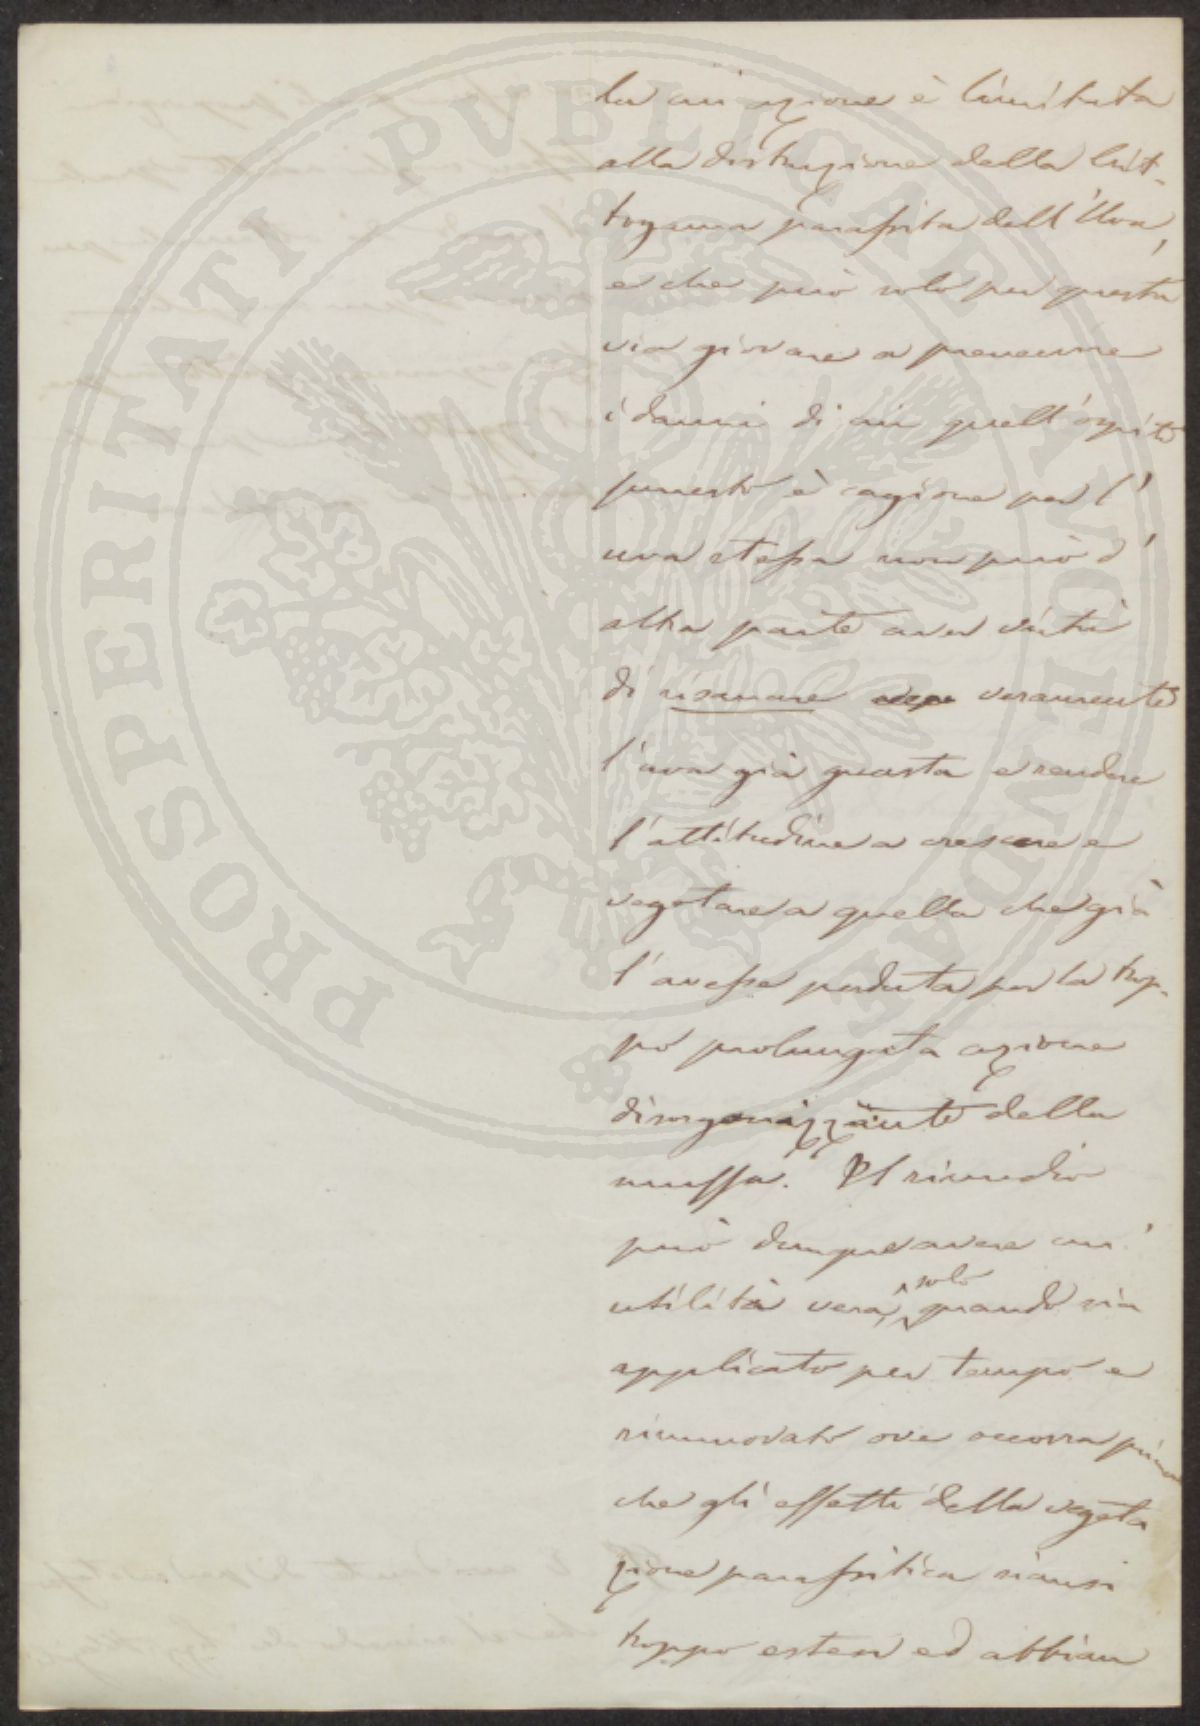 PROSPERITATI PVBLICAE AVGENDAE
la cui azione è limitata
alla distruzione della Crit-
togama parassita dell'Uva,
e che può solo per questa
via giovare a prevenire
i danni di cui quell'ospite
funesto è cagione per l'
uva stessa non può d'
altra parte aver virtù
di risanare veramente
l'uva già guasta e rendere
l'attitudine a crescere e
vegetare a quella che già
l'avesse perduta per la trop-
po prolungata azione
disorganizzante della
muffa. Il rimedio
può dunque avere un'
utilità vera, solo quando sia
applicato per tempo e
rinnovato ove occorra prima
che gli effetti della vegeta
zione parassitica siansi
troppo estesi ed abbian